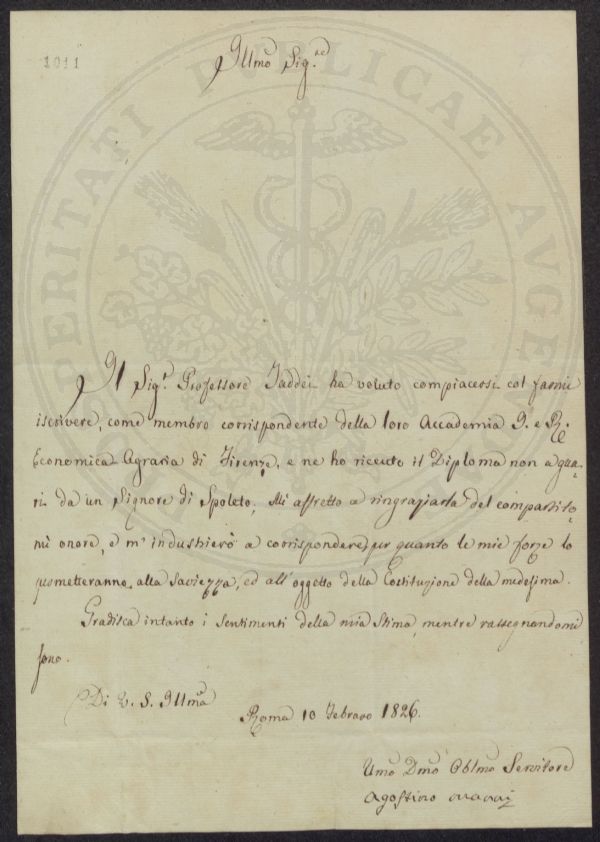 1011
Illmo Sig.re
Il Sig.r Professore Taddei ha voluto compiacersi col farmi
iscrivere, come membro corrispondente della loro Accademia I. e R.le
Economica-Agraria di Firenze, e ne ho ricevuto il Diploma non a gua-
ri da un Signore di Spoleto. Mi affretto a ringraziarla del compartito-
mi onore, e m'industrierò a corrispondere, per quanto le mie forze lo
prometteranno, alla saviezza, ed all'oggetto della Costituzione della medesima.
Gradisca intanto i sentimenti della mia stima, mentre rassegnandomi
sono.
Di V. S. Illma
Roma 10 Febraro 1826.
Umo Dmo Obbmo Servitore
Agostino
PROSPERITATI PUBLICAE AUGENDAE